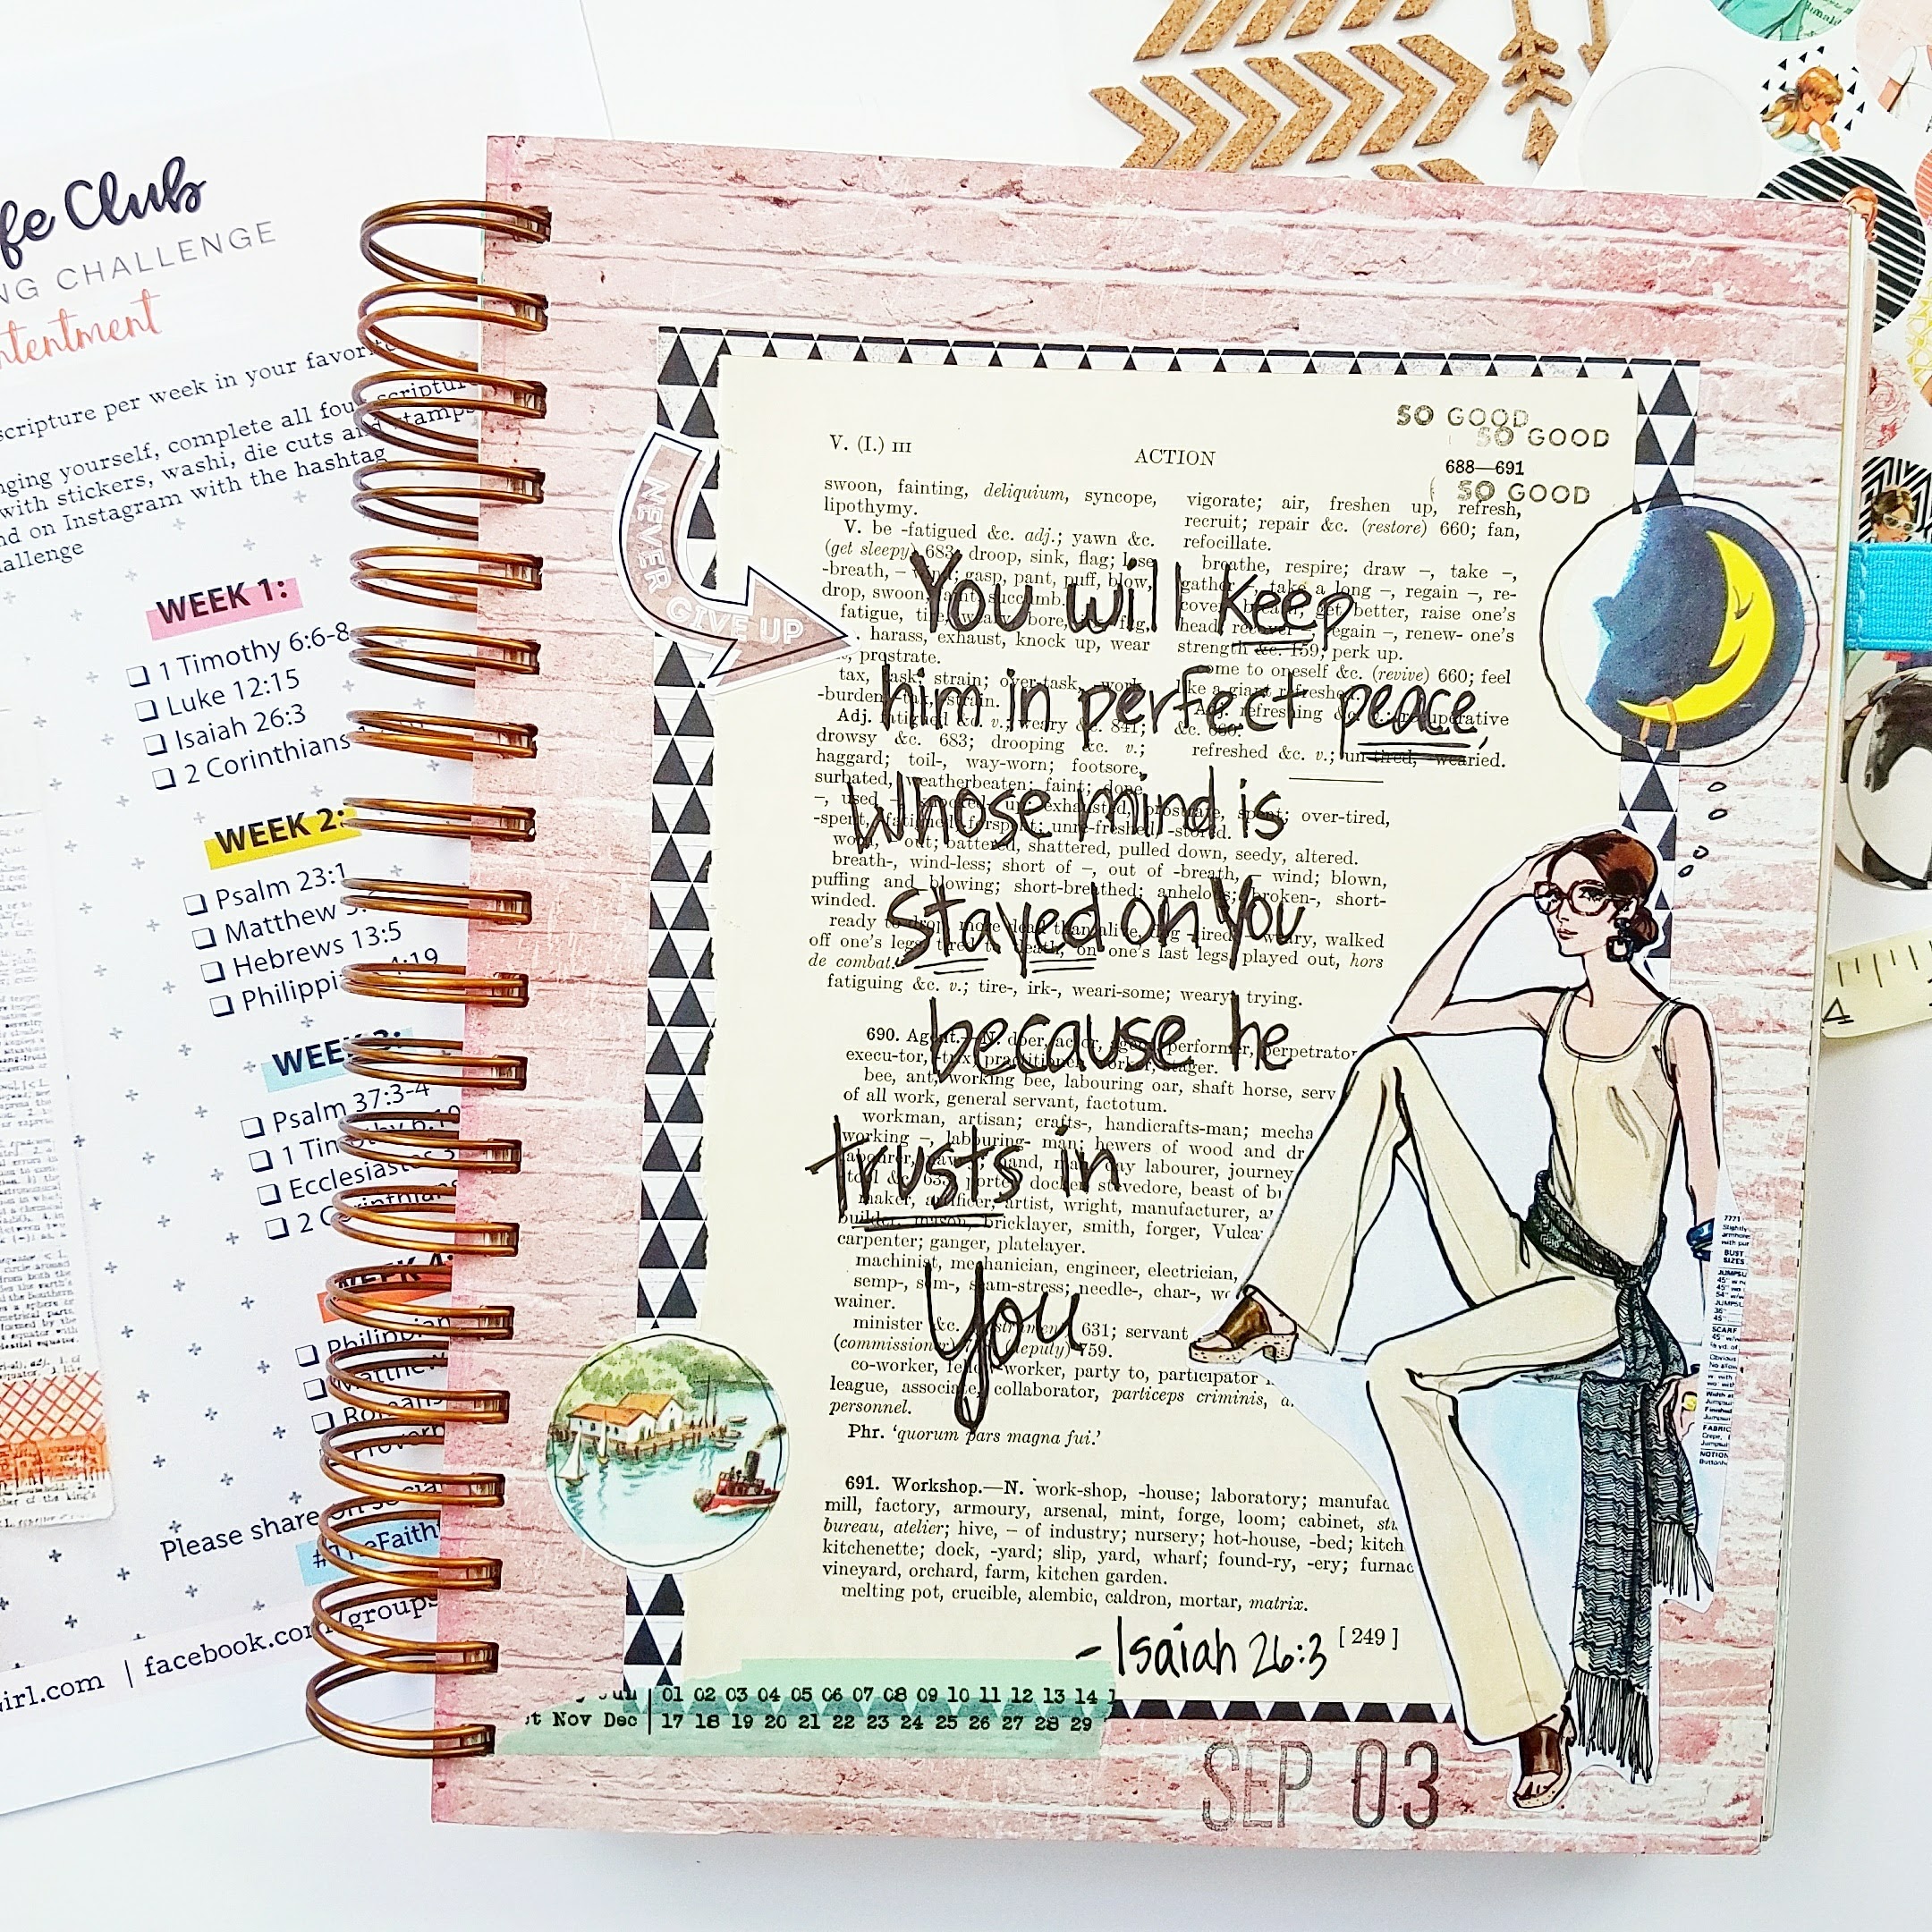 fe Club
NG CHALLENGE
ntentment
scripture per week in your favorite
nging yourself, complete all four scripture
with stickers, washi, die cuts and stamps
nd on Instagram with the hashtag
allenge
WEEK 1:
1 Timothy 6:6-8
Luke 12:15
Isaiah 26:3
2 Corinthians
WEEK 2:
Psalm 23:1
Matthew
Hebrews 13:5
Philippi 4:19
WEEK 3:
Psalm 37:3-4
1 Timothy 6:10
Ecclesiastes
2 Corinthians
WEEK 4:
Philippian
Matthew
Romans
Proverb
Please share on social
#TheFaith
girl.com | facebook.com/groups
NEVER
GIVE UP
SO GOOD
SO GOOD
V. (I.) III ACTION 688—691
SO GOOD
swoon, fainting, deliquium, syncope,
lipothymy.
V. be -fatigued &c. adj.; yawn &c.
(get sleepy) 683; droop, sink, flag; lose
-breath, – wind; gasp, pant, puff, blow,
drop, swoon, faint, succumb.
fatigue, tire, bore,
harass, exhaust, knock up, wear
prostrate.
tax, task, strain; over-task, -work,
-burden, -tax, -strain.
Adj. fatigued &c. v.; weary &c. 841;
drowsy &c. 683; drooping &c. v.;
haggard; toil-, way-worn; footsore,
surbated, weatherbeaten; faint; done
vigorate; air, freshen up, refresh,
recruit; repair &c. (restore) 660; fan,
refocillate.
breathe, respire; draw –, take –,
gather –, take a long –, regain –, re-
cover breath; get better, raise one's
head; recover –, regain –, renew- one's
strength &c. 159; perk up.
come to oneself &c. (revive) 660; feel
like a giant refreshed.
Adj. refreshing &c. v.; recuperative
&c. 660.
refreshed &c. v.; un-tired, -wearied.
–, used –, knocked- up; exhausted, prostrate, spent; over-tired,
-spent, -fatigued; forspent; unre-freshed, -stored.
worn out; battered, shattered, pulled down, seedy, altered.
breath-, wind-less; short of –, out of -breath, – wind; blown,
puffing and blowing; short-breathed; anhelous; broken-, short-
winded.
ready to drop, more dead than alive, dog -tired, weary, walked
off one's legs, tired to death, on one's last legs, played out, hors
de combat.
fatiguing &c. v.; tire-, irk-, weari-some; weary, trying.
690. Agent.—N. doer, actor, agent, performer, perpetrator
execu-tor, -trix; practitioner, worker, stager.
bee, ant, working bee, labouring oar, shaft horse, serv
of all work, general servant, factotum.
workman, artisan; crafts-, handicrafts-man; mecha
working –, labouring- man; hewers of wood and dr
labourer, navvy; hand, man, day labourer, journey
tool &c. 633; porter, docker, stevedore, beast of bu
maker, artificer, artist, wright, manufacturer, a
builder, mason, bricklayer, smith, forger, Vulca
carpenter; ganger, platelayer.
machinist, mechanician, engineer, electrician,
semp-, sem-, seam-stress; needle-, char-, wo
wainer.
minister &c. (instrument) 631; servant
(commissioner) (deputy) 759.
co-worker, fellow-worker, party to, participator
league, associate, collaborator, particeps criminis,
personnel.
Phr. 'quorum pars magna fui.'
691. Workshop.—N. work-shop, -house; laboratory; manufac
mill, factory, armoury, arsenal, mint, forge, loom; cabinet, stu
bureau, atelier; hive, – of industry; nursery; hot-house, -bed; kitch
kitchenette; dock, -yard; slip, yard, wharf; found-ry, -ery; furnac
vineyard, orchard, farm, kitchen garden.
melting pot, crucible, alembic, caldron, mortar, matrix.
[ 249 ]
You will keep
him in perfect peace,
Whose mind is
stayed on You
because he
trusts in
You
- Isaiah 26:3
Jul 01 02 03 04 05 06 07 08 09 10 11 12 13 14
Nov Dec 17 18 19 20 21 22 23 24 25 26 27 28 29
SEP 03
7771
BUST
SIZES
SCARF
4